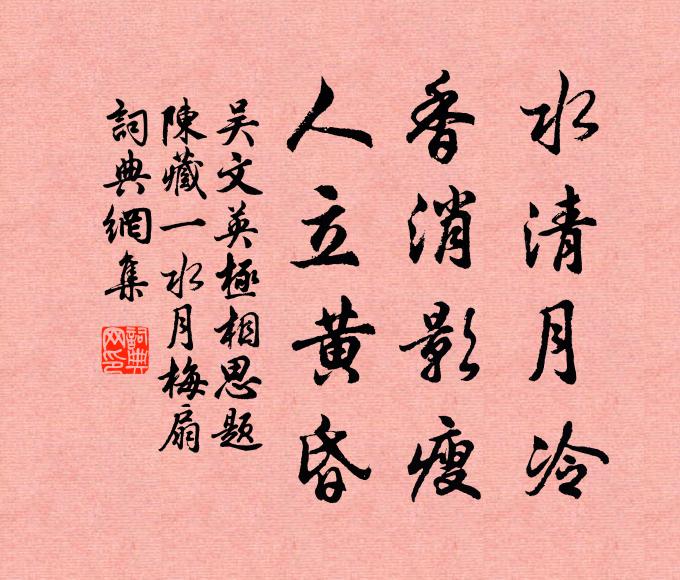 水清月冷
香消影瘦
人立黄昏
吴文英極相思题
陳藏一水月梅扇
詞典網集
詞典网印